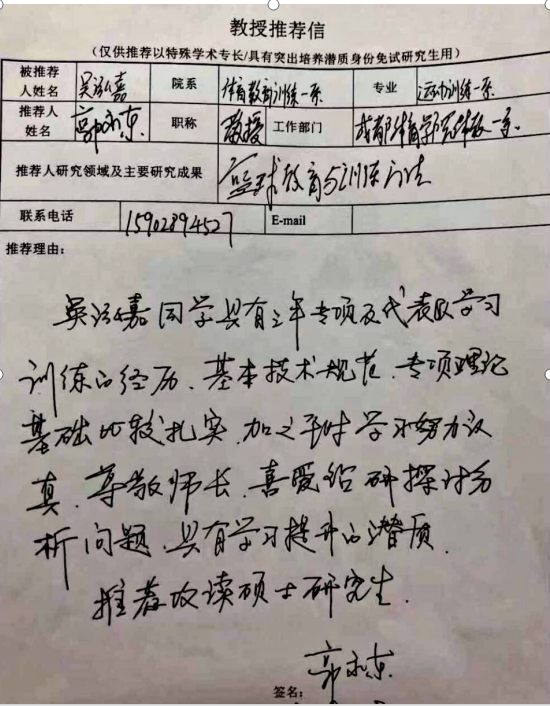 教授推荐信
（仅供推荐以特殊学术专长/具有突出培养潜质身份免试研究生用）
被推荐人姓名 吴泓嘉 院系 体育教育训练一系 专业 运动训练一系
推荐人姓名 郭永东 职称 教授 工作部门 成都体育学院体教一系
推荐人研究领域及主要研究成果 篮球教育与训练方法
联系电话 15902894527 E-mail
推荐理由：
吴泓嘉同学具有三年专项及代表队学习
训练的经历、基本技术规范、专项理论
基础比较扎实，加之平时学习努力认
真、尊敬师长、喜爱钻研探讨分
析问题、具有学习提升的潜质.
推荐攻读硕士研究生.
郭永东
签名：